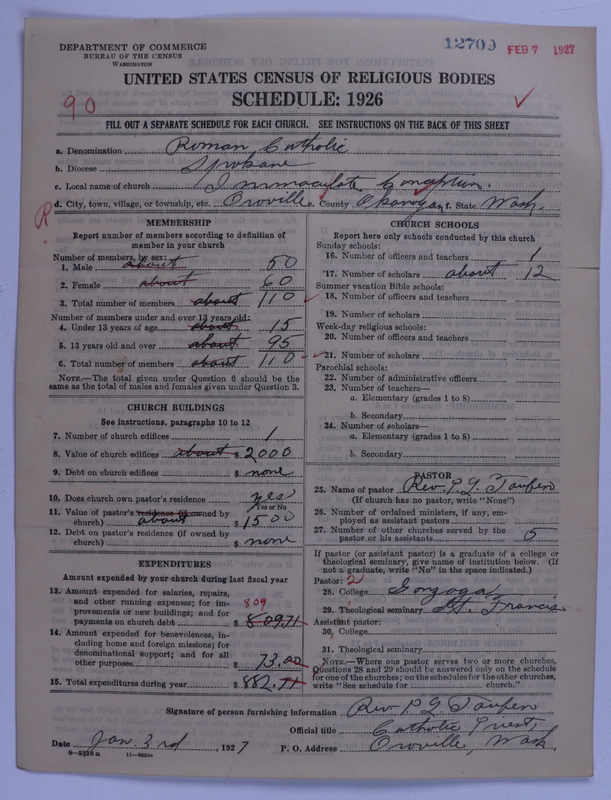 DEPARTMENT OF COMMERCE
BUREAU OF THE CENSUS
WASHINGTON
12709
FEB 7 1927
UNITED STATES CENSUS OF RELIGIOUS BODIES
SCHEDULE: 1926
90
FILL OUT A SEPARATE SCHEDULE FOR EACH CHURCH. SEE INSTRUCTIONS ON THE BACK OF THIS SHEET
a. Denomination Roman Catholic
b. Diocese Spokane
c. Local name of church Immaculate Conception.
d. City, town, village, or township, etc. Oroville e. County Okanogan f. State Wash.
R
MEMBERSHIP
Report number of members according to definition of
member in your church
Number of members, by sex:
1. Male about 50
2. Female about 60
3. Total number of members about 110
Number of members under and over 13 years old:
4. Under 13 years of age about 15
5. 13 years old and over about 95
6. Total number of members about 110
NOTE.—The total given under Question 6 should be the
same as the total of males and females given under Question 3.
CHURCH BUILDINGS
See instructions, paragraphs 10 to 12
7. Number of church edifices 1
8. Value of church edifices about $ 2000
9. Debt on church edifices $ none
10. Does church own pastor's residence yes
Yes or No
11. Value of pastor's residence (if owned by
church) about $ 1500
12. Debt on pastor's residence (if owned by
church) $ none
EXPENDITURES
Amount expended by your church during last fiscal year
13. Amount expended for salaries, repairs,
and other running expenses; for im-
provements or new buildings; and for
payments on church debt $ 809.71
809
14. Amount expended for benevolences, in-
cluding home and foreign missions; for
denominational support; and for all
other purposes $ 73.00
15. Total expenditures during year $ 882.71
CHURCH SCHOOLS
Report here only schools conducted by this church
Sunday schools:
16. Number of officers and teachers 1
17. Number of scholars about 12
Summer vacation Bible schools:
18. Number of officers and teachers
19. Number of scholars
Week-day religious schools:
20. Number of officers and teachers
21. Number of scholars
Parochial schools:
22. Number of administrative officers
23. Number of teachers—
a. Elementary (grades 1 to 8)
b. Secondary
24. Number of scholars—
a. Elementary (grades 1 to 8)
b. Secondary
PASTOR
25. Name of pastor Rev. P. G. Taufen
(If church has no pastor, write "None")
26. Number of ordained ministers, if any, em-
ployed as assistant pastors
27. Number of other churches served by the
pastor or his assistants 5
If pastor (or assistant pastor) is a graduate of a college or
theological seminary, give name of institution below. (If
not a graduate, write "No" in the space indicated.)
Pastor: 2
28. College Gonzaga
29. Theological seminary St. Francis
Assistant pastor:
30. College
31. Theological seminary
NOTE.—Where one pastor serves two or more churches,
Questions 28 and 29 should be answered only on the schedule
for one of the churches; on the schedules for the other churches,
write "See schedule for church."
Signature of person furnishing information Rev P G Taufen
Official title Catholic Priest,
Date Jan. 3rd, 1927 P. O. Address Oroville, Wash.